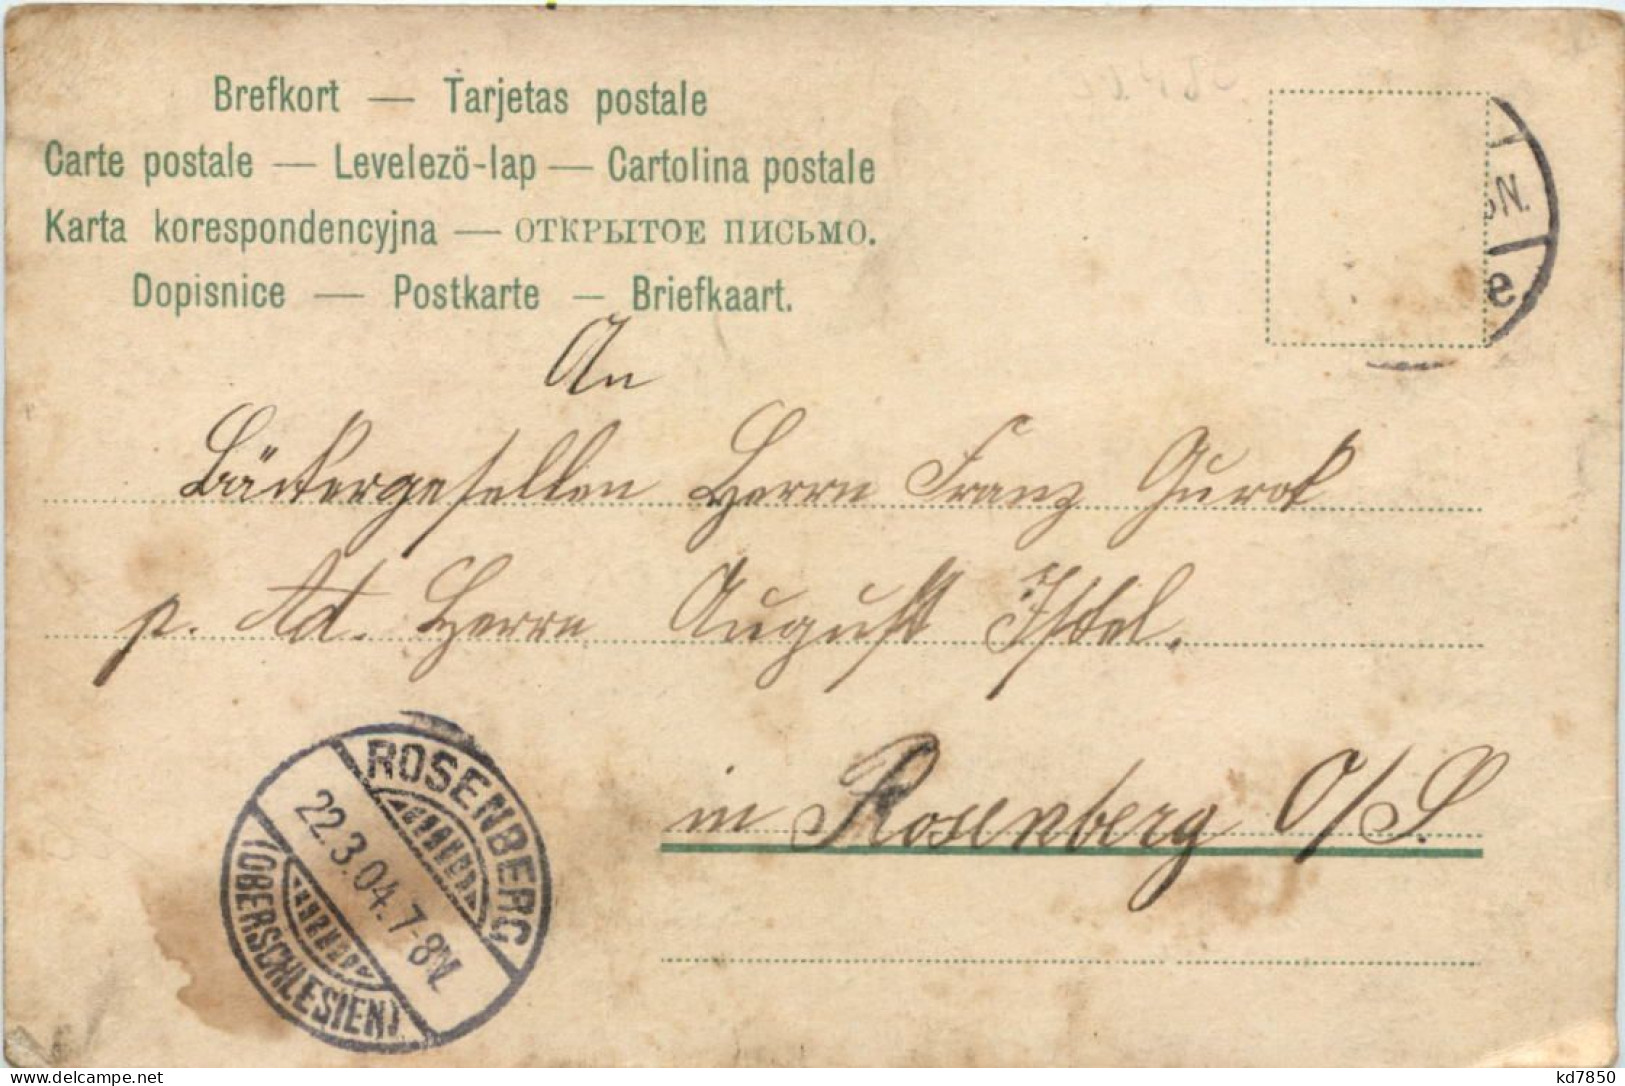 Brefkort — Tarjetas postale
Carte postale — Levelezö-lap — Cartolina postale
Karta korespondencyjna — ОТКРЫТОЕ ПИСЬМО.
Dopisnice — Postkarte — Briefkaart.
An
Bäckergesellen Herrn Franz Gurok
p. Ad. Herrn August
in Rosenberg O/S.
ROSENBERG
22.3.04.7-8V.
(OBERSCHLESIEN)
N.
e
delcampe.net
kd7850